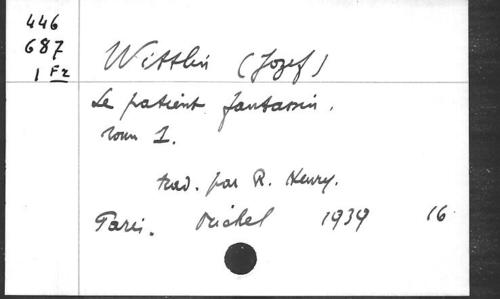 446
687
1 Fr
Wittlin (Jozef)
Le patient fantassin.
Tom 1.
trad. par R. Henry.
Paris. Michel 1939 16